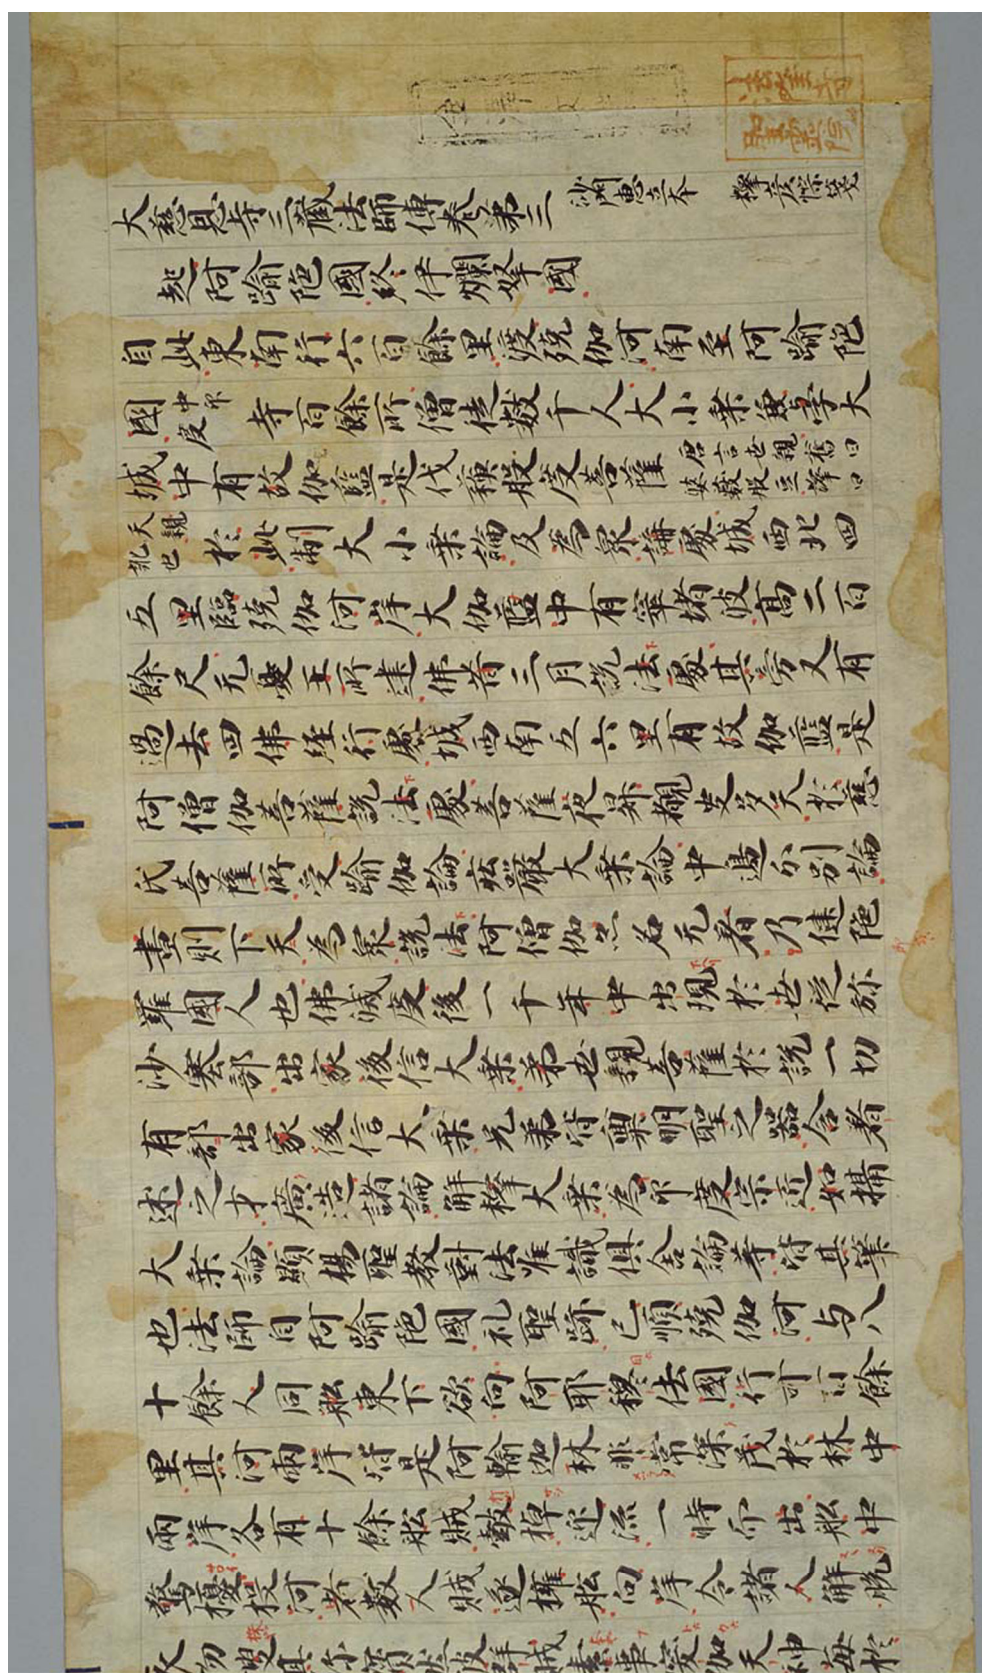 法隆寺
聖靈院
大慈恩寺三藏法師傳卷第三 沙門惠立本 釋彦悰箋
起阿踰陁國終伊爛拏國
自此東南行六百餘里渡殑伽河南至阿踰陁
國中印度寺百餘所僧徒數千人大小乘兼學大
城中有故伽藍是伐蘓般度菩薩唐言世親舊曰婆藪般豆譯曰
天親訛也於此制大小乘論及為衆講處城西北四
五里臨殑伽河岸大伽藍中有窣堵波高二百
餘尺无憂王所建佛昔三月說法處其旁又有
過去四佛經行處城西南五六里有故伽藍是
阿僧伽菩薩說法處菩薩夜昇覩史多天於慈
氏菩薩所受踰伽論莊嚴大乘論中邊分別論
晝則下天為衆說法阿僧伽亦名无著乃健陁
羅國人也佛滅度後一千年中出現於世從弥
沙塞部出家後信大乘弟世親菩薩於說一切
有部出家後信大乘兄弟皆稟明聖之器含著
述之才廣造諸論解釋大乘為印度宗近如攝
大乘論顯楊聖教對法唯識俱舍論等皆其筆
也法師自阿踰陁國礼聖跡已順殑伽河与八
十餘人同舩東下欲向阿耶穆佉國行可百餘
里其河兩岸皆是阿輸迦林非常深茂於林中
兩岸各有十餘舩賊鼓棹迎流一時而出舩中
驚擾投河者數人賊遂擁舩向岸令諸人解脫
彼群賊素事突伽天神每於